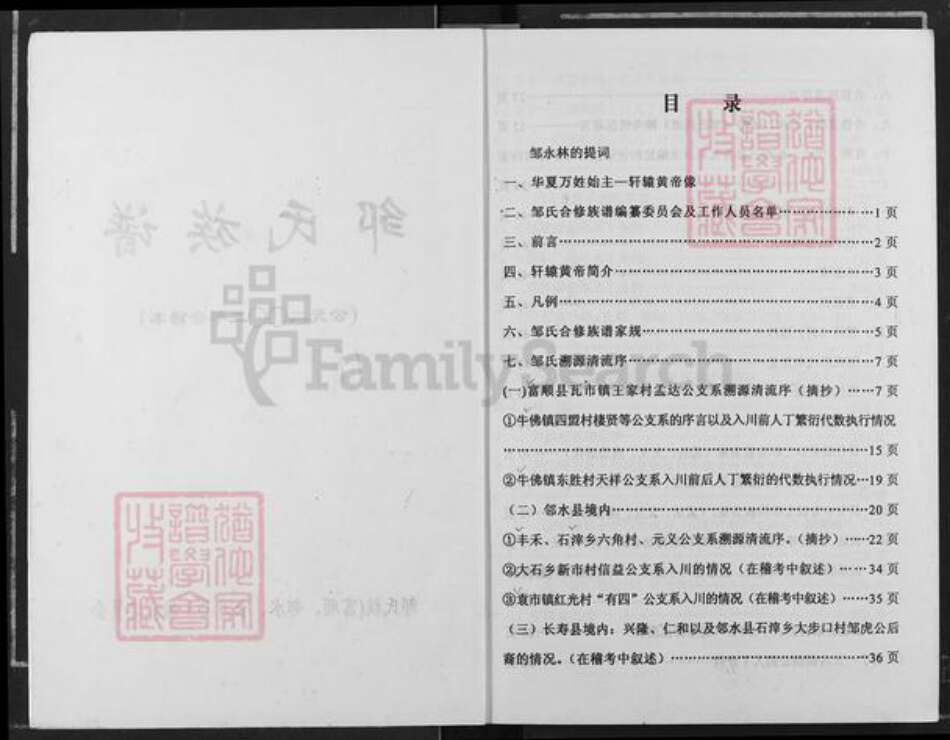 目 录
邹永林的提词
一、华夏万姓始主—轩辕黄帝像
二、邹氏合修族谱编纂委员会及工作人员名单……………1 页
三、前言……………2 页
四、轩辕黄帝简介……………3 页
五、凡例……………4 页
六、邹氏合修族谱家规……………5 页
七、邹氏溯源清流序……………7 页
(一)富顺县瓦市镇王家村孟达公支系溯源清流序（摘抄）……7 页
①牛佛镇四盟村楼贤等公支系的序言以及入川前人丁繁衍代数执行情况
……………15 页
②牛佛镇东胜村天祥公支系入川前后人丁繁衍的代数执行情况…19 页
（二）邻水县境内……………20 页
①丰禾、石滓乡六角村、元义公支系溯源清流序。（摘抄）……22 页
②大石乡新市村信益公支系入川的情况（在稽考中叙述）……34 页
③袁市镇红光村“有四”公支系入川的情况（在稽考中叙述）……35 页
（三）长寿县境内：兴隆、仁和以及邻水县石滓乡大步口村邹虎公后
裔的情况。（在稽考中叙述）……………36 页
邹氏族谱
FamilySearch